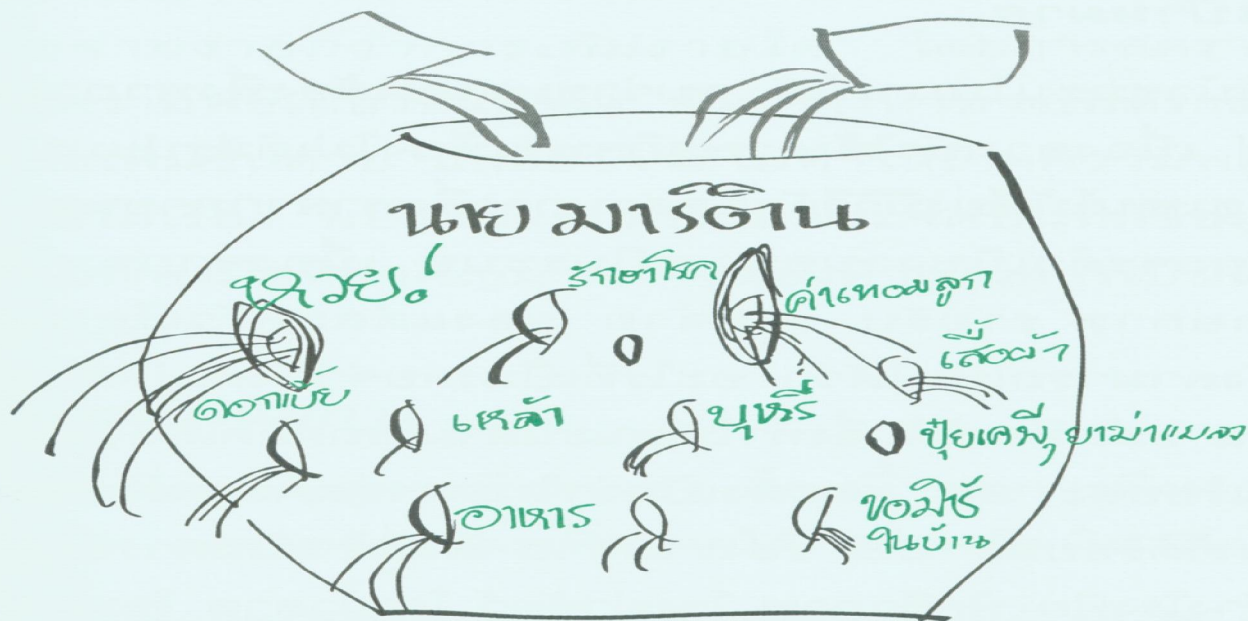 นาย มาร์ติน
หวย!
รักษาโรค
ค่าเทอมลูก
เสื้อผ้า
ดอกเบี้ย
เหล้า
บุหรี่
ปุ๋ยเคมี, ยาฆ่าแมลง
อาหาร
ของใช้
ในบ้าน